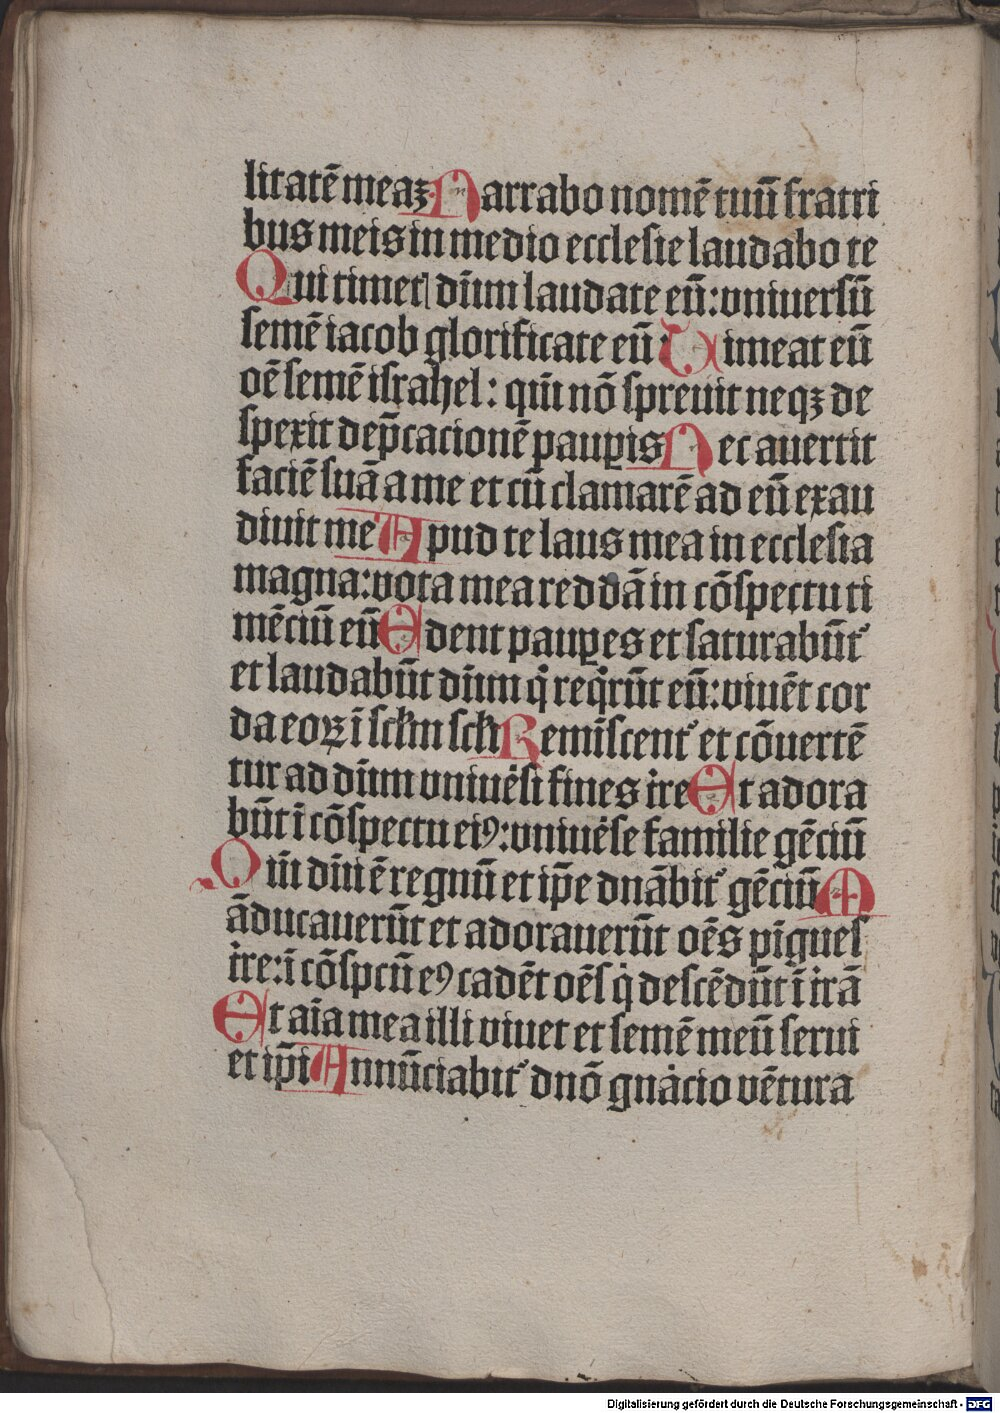 litatē meaꝫ Narrabo nomē tuū fratri
bus meis in medio ecclesie laudabo te
Qui timet dn̄m laudate eū: vniuersū
semē iacob glorificate eū: Timeat eū
oē semē israhel: qm̄ nō spreuit neqꝫ de
spexit dep̄cacionē paup̲is Nec auertit
faciē suā a me et cū clamarē ad eū exau
diuit me Apud te laus mea in ecclesia
magna: vota mea reddā in cōspectu ti
mēciū eū Edent paup̲es et saturabūt᷑
et laudabūt dn̄m qͥ reqͥrūt eū: viuēt cor
da eoꝝ ī sclm̄ scli Remīscent᷑ et cōuertē
tur ad dn̄m vniue͛si fines tre Et adora
būt ī cōspectu eiꝰ: vniue͛se familie gēciū
Qm̄ dn̄i ē regnū et ip̄e dn̄abit᷑ gēciū M
āducauerūt et adorauerūt oēs pīgues
tre: ī cōspcū eꝰ cadēt oēs qͥ descēdūt ī trā
Et aīa mea illi viuet et semē meū serui
et ip̄i Annūciabit᷑ dnō gn̄acio vētura
Digitalisierung gefördert durch die Deutsche Forschungsgemeinschaft - DFG